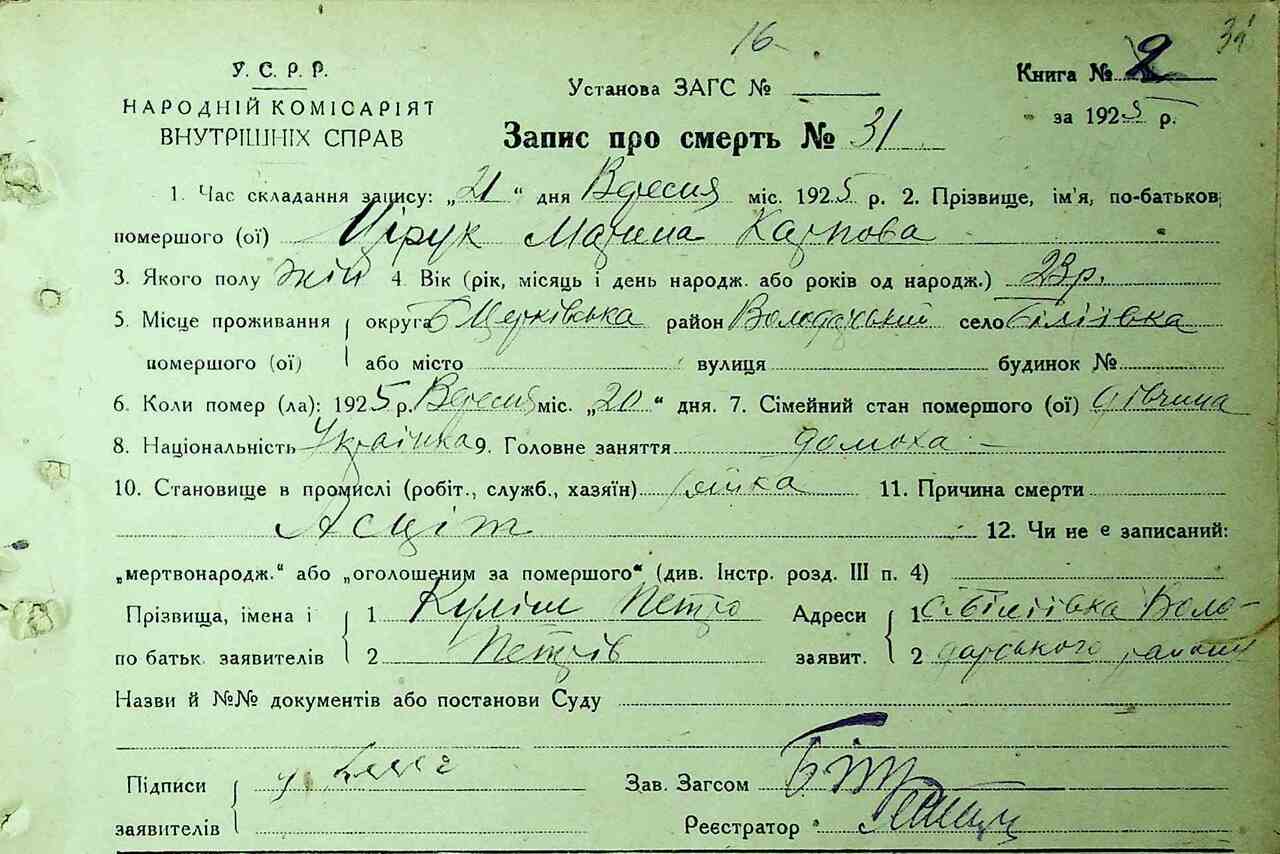 16
У.С.Р.Р.
НАРОДНІЙ КОМІСАРІЯТ
ВНУТРІШНІХ СПРАВ
Установа ЗАГС №
Книга № 2
за 1925 р.
Запис про смерть № 31
1. Час складання запису: „21“ дня Вересня міс. 1925 р. 2. Прізвище, ім'я, по-батьков,
помершого (ої) Цірук Марина Карпова
3. Якого полу жін 4. Вік (рік, місяць і день народж. або років од народж.) 23 р.
5. Місце проживання округа Б Церківська район Володарський село Біліївка
помершого (ої) або місто вулиця будинок №
6. Коли помер (ла): 1925 р. Вересня міс. „20“ дня. 7. Сімейний стан помершого (ої) дівчина
8. Національність Українка 9. Головне заняття домоха
10. Становище в промислі (робіт., служб., хазяїн) 11. Причина смерти
Асціт 12. Чи не є записаний:
„мертвонародж.“ або „оголошеним за помершого“ (див. Інстр. розд. III п. 4)
Прізвища, імена і 1 Куліш Петро Адреси 1 с Біліївка Воло-
по батьк. заявителів 2 Петрів заявит. 2 дарського района
Назви й №№ документів або постанови Суду
Підписи Зав. Загсом
заявителів Реєстратор